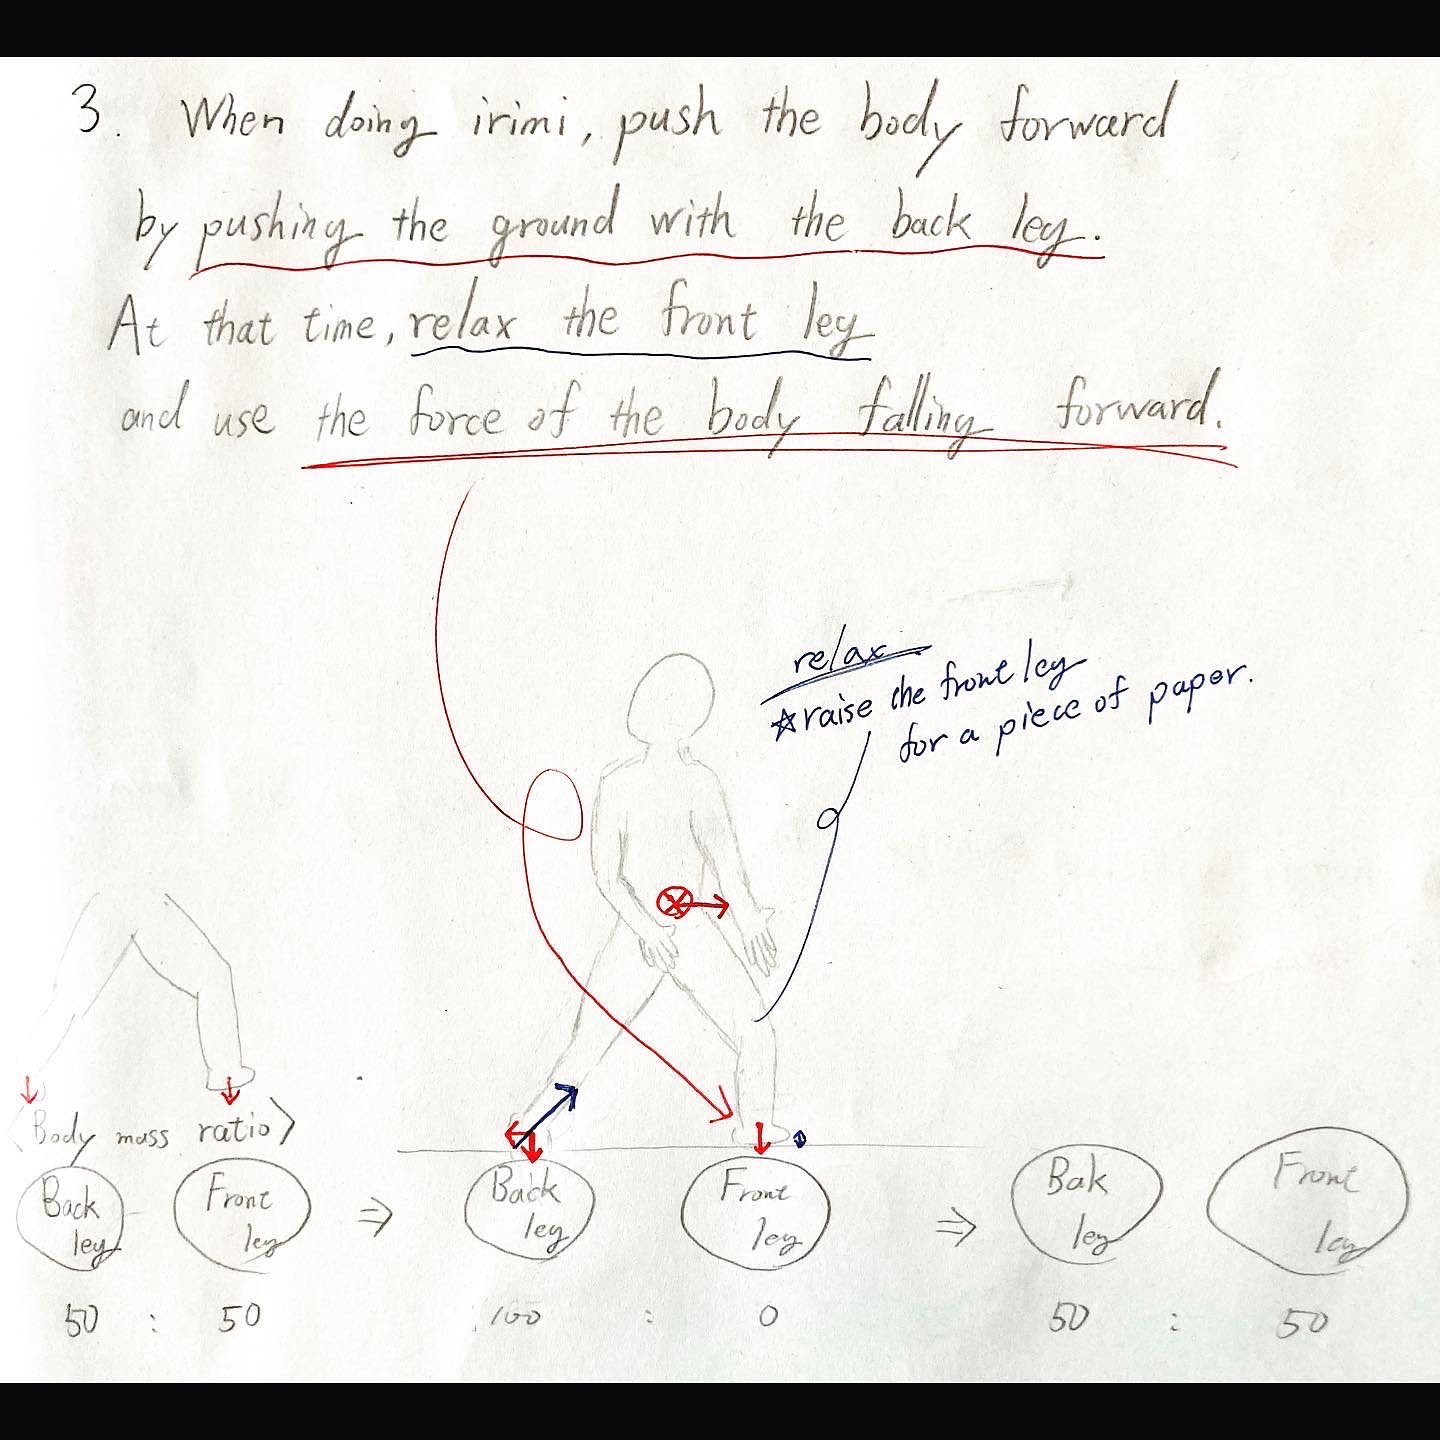 3. When doing irimi, push the body forward
by pushing the ground with the back leg.
At that time, relax the front leg
and use the force of the body falling forward.
relax
☆raise the front leg
for a piece of paper.
<Body mass ratio>
Back leg
Front leg
⇒
Back leg
Front leg
⇒
Bak leg
Front leg
50 : 50
100 : 0
50 : 50